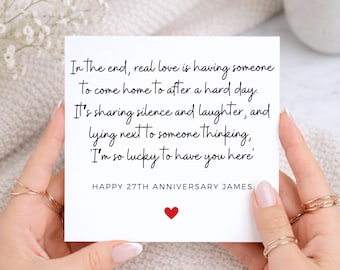 In the end, real love is having someone
to come home to after a hard day.
It's sharing silence and laughter, and
lying next to someone thinking,
'I'm so lucky to have you here'
HAPPY 27TH ANNIVERSARY JAMES